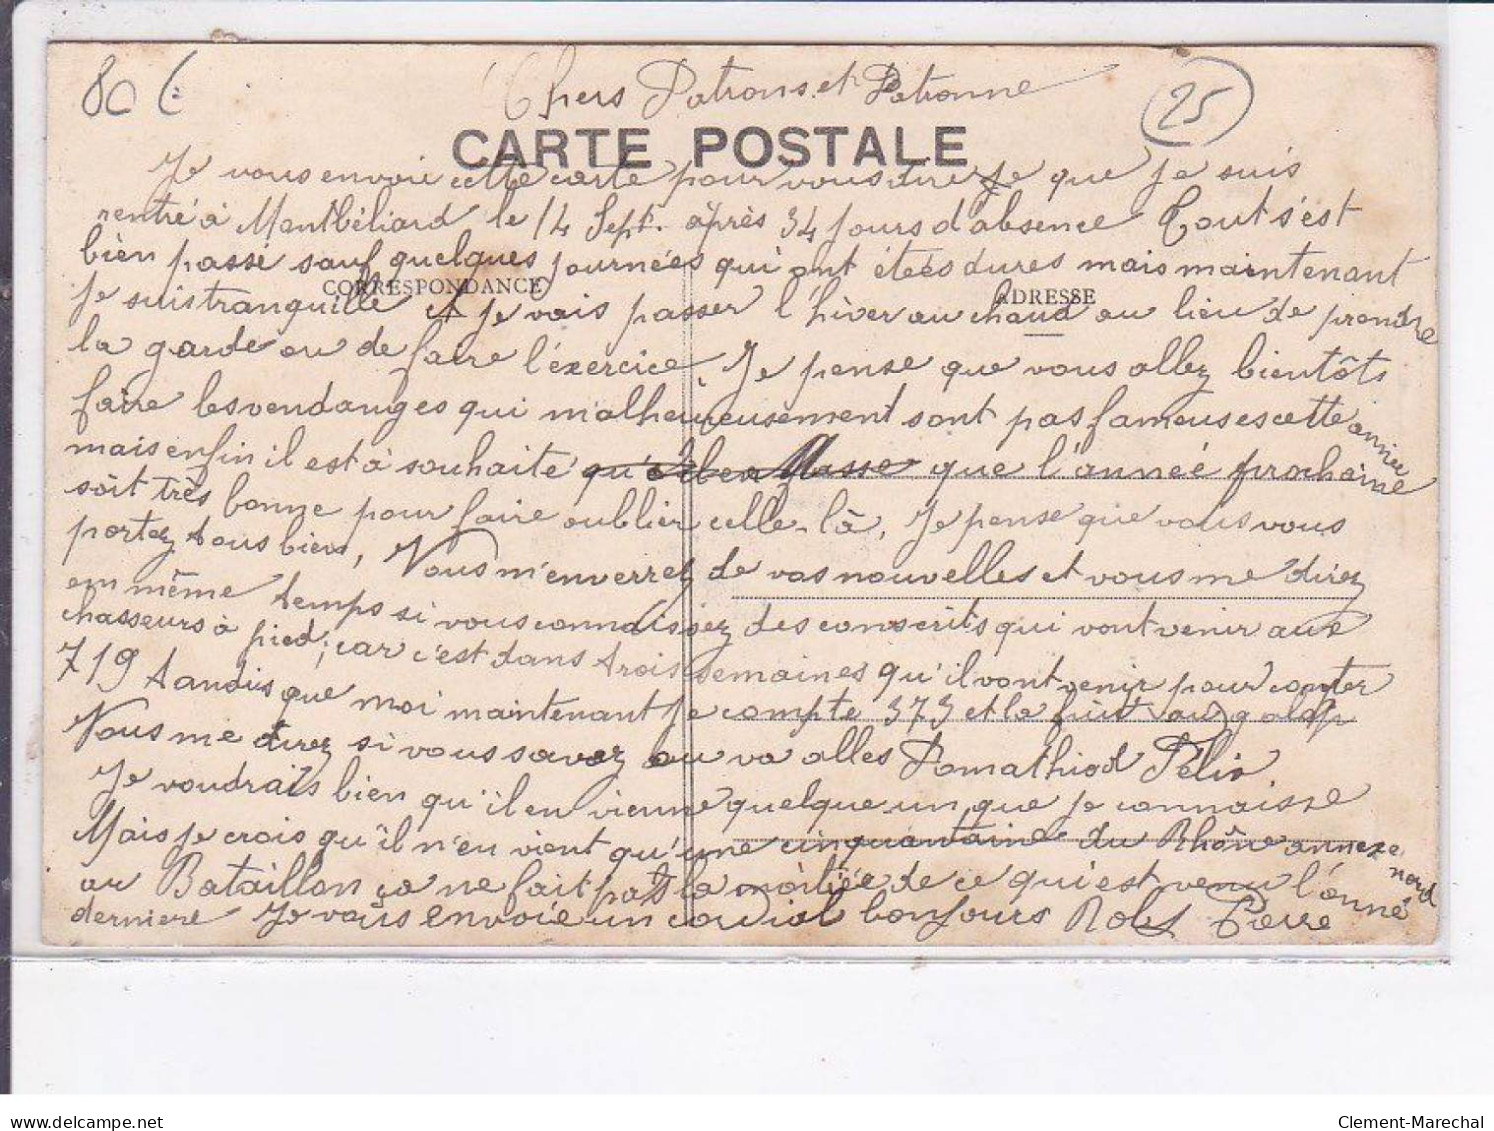 80 €
Chers Patrons et Patronne
25
CARTE POSTALE
Je vous envoie cette carte pour vous dire je que je suis
rentré à Montbéliard le 14 Sept. après 34 jours d'absence Tout s'est
bien passé sauf quelques journées qui ont étées dures mais maintenant
CORRESPONDANCE
ADRESSE
je suis tranquille et je vais passer l'hiver au chaud au lieu de prendre
la garde ou de faire l'éxercice. Je pense que vous allez bientôts
faire les vendanges qui malheureusement sont pas fameuses cette année
mais enfin il est à souhaite que l'année prochaine
soit très bonne pour faire oublier celle-là. Je pense que vous vous
portez tous bien, Vous m'enverrez de vos nouvelles et vous me direz
en même temps si vous connaissez des conscrits qui vont venir aux
chasseurs à pied; car c'est dans trois semaines qu'il vont venir pour compter
719 tandis que moi maintenant je compte 373 et la fuit au galop
Vous me direz si vous savez ou va alles Domathiod Félix.
Je voudrais bien qu'il en vienne quelque un que je connaisse
Mais je crois qu'il n'en vient qu'une cinquantaine du Rhône annexe nord
au Bataillon ça ne fait pas la moitiée de ce qui est venu l'anné
derniere Je vous envoie un cordial bonjours Robs Pierre
Clement-Marechal
www.delcampe.net